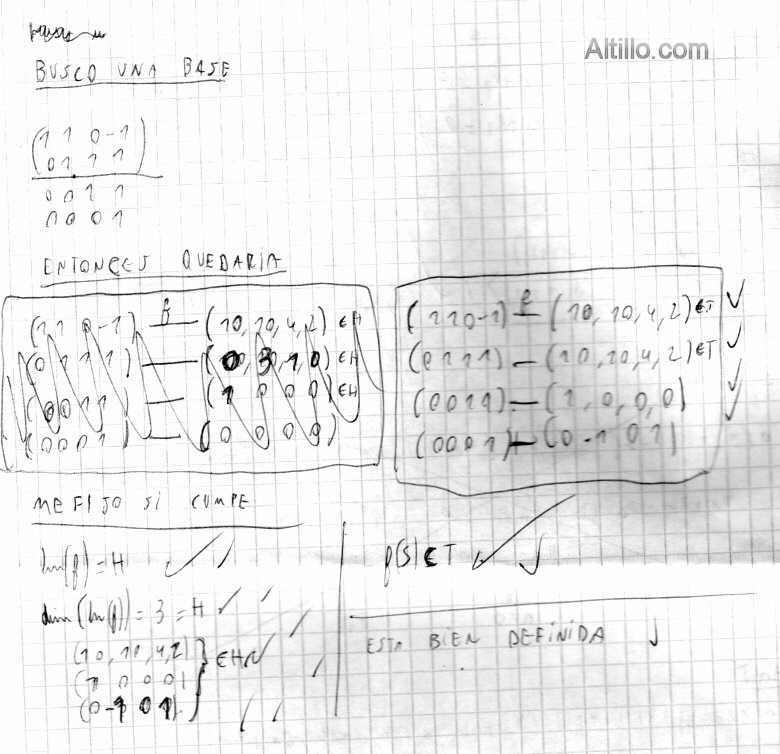 Altillo.com
BUSCO UNA BASE
1 1 0 -1
0 1 1 1
0 0 1 1
0 0 0 1
ENTONCES QUEDARIA
(1 1 0 -1) f — (10, 10, 4, 2) ∈ H
(0 1 1 1) — (0, 3, 1, 0) ∈ H
(0 0 1 1) — (1 0 0 0) ∈ H
(0 0 0 1) — (0 0 0 0)
(1 1 0 -1) f — (10, 10, 4, 2) ∈ T ✓
(0 1 1 1) — (10, 10, 4, 2) ∈ T ✓
(0 0 1 1) — (1, 0, 0, 0) ✓
(0 0 0 1) — (0 -1 0 1) ✓
ME FIJO SI CUMPE
Im(f) = H ✓
dim(Im(f)) = 3 = H ✓
(10, 10, 4, 2)
(1 0 0 0) } ∈ H ✓
(0 -1 0 1)
f(S) ⊂ T ✓ ✓
ESTA BIEN DEFINIDA ✓